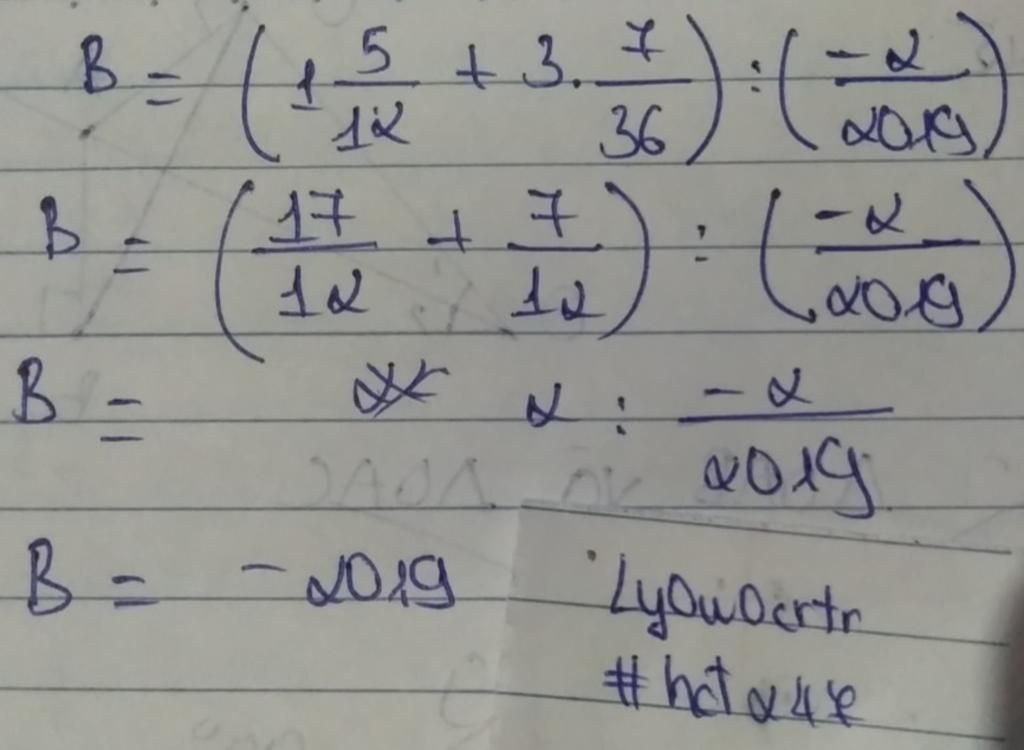 B = (1 5/12 + 3. 7/36) : (-2/2019)
B = (17/12 + 7/12) : (-2/2019)
B = 2 : -2/2019
B = -2019
#hct247